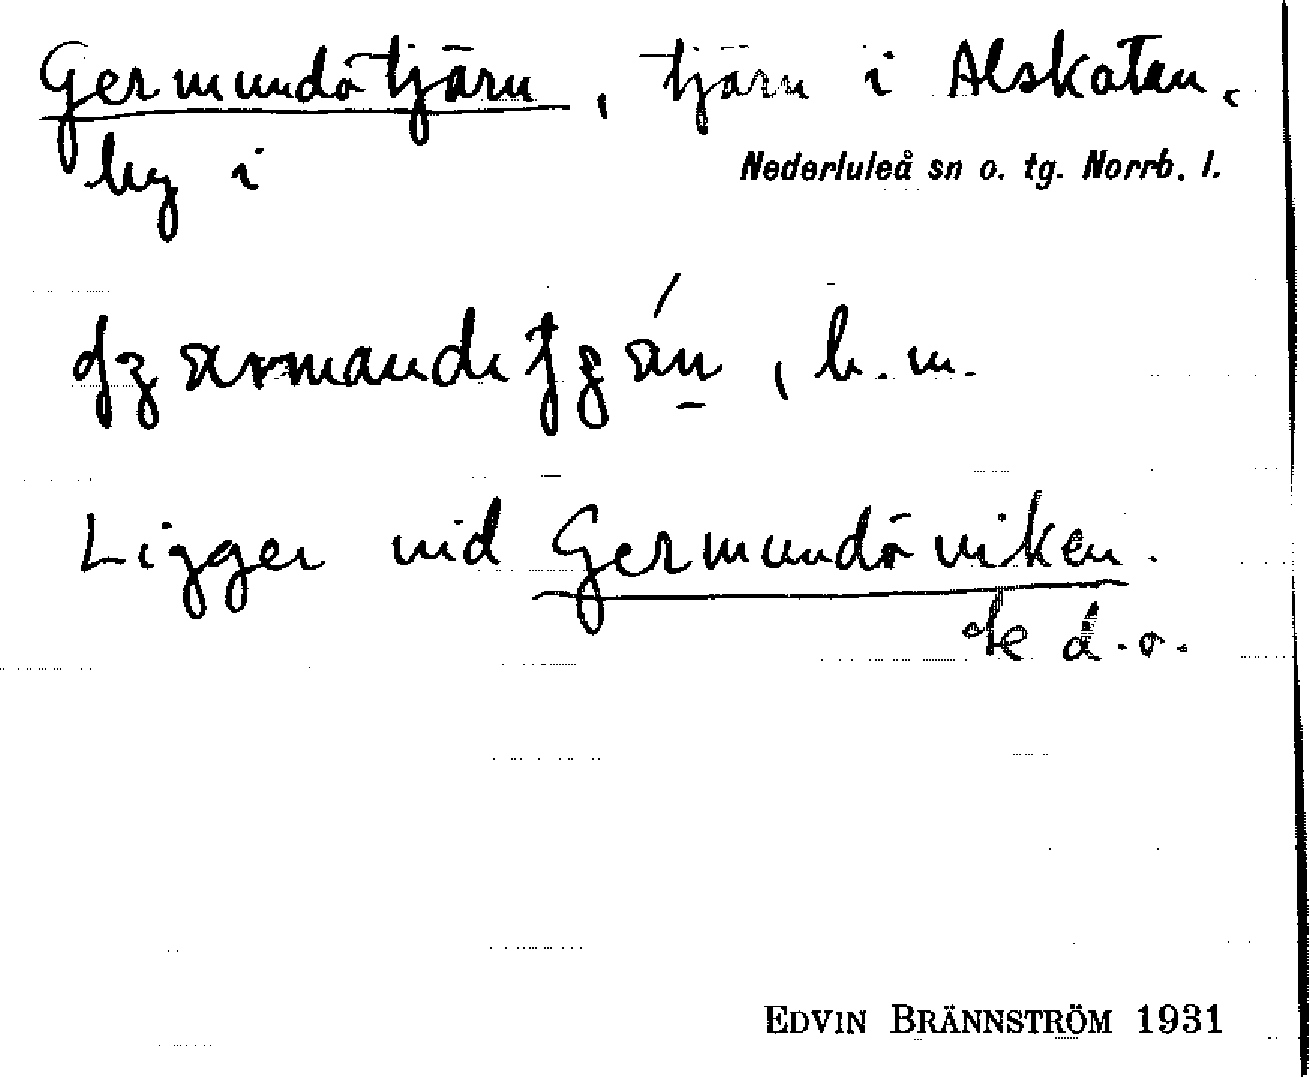 Germundötjärn, tjärn i Alskatan,
by i
Nederluleå sn o. tg. Norrb. l.
b. m.
Ligger vid Germundöviken.
se d. o.
EDVIN BRÄNNSTRÖM 1931